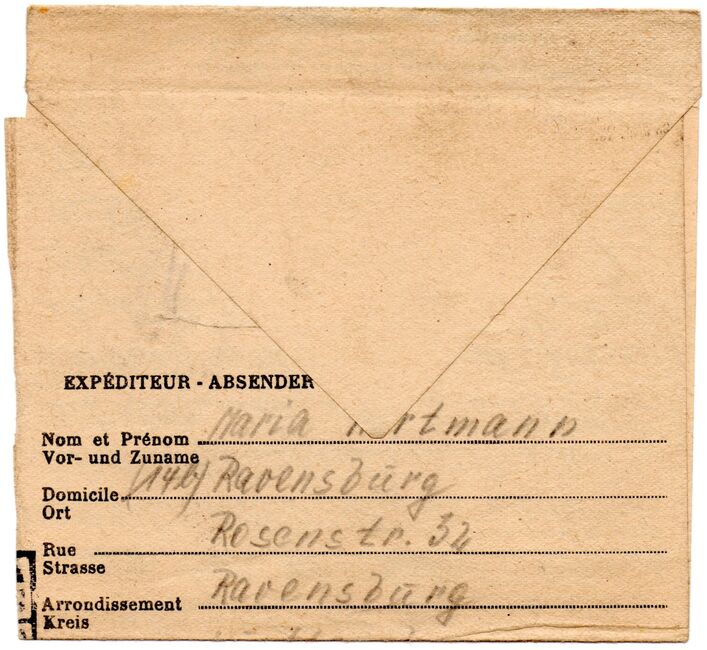 EXPÉDITEUR - ABSENDER
Nom et Prénom Maria
Vor- und Zuname
Domicile (14b) Ravensburg
Ort
Rue Rosenstr. 32
Strasse
Arrondissement Ravensburg
Kreis